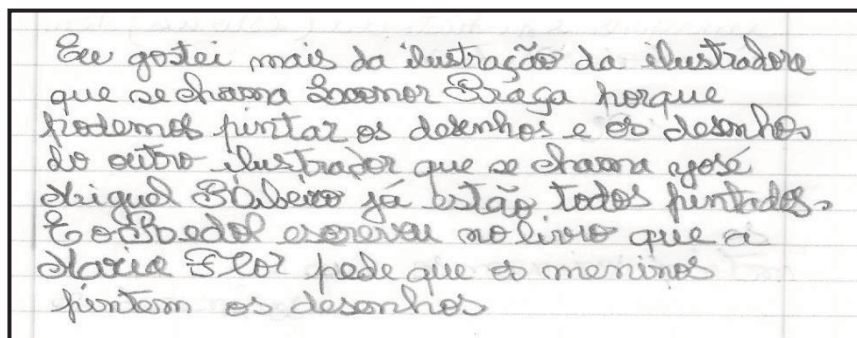 Eu gostei mais da ilustração da ilustradora
que se chama Leonor Braga porque
podemos pintar os desenhos e os desenhos
do outro ilustrador que se chama José
Miguel Ribeiro já estão todos pintados.
E o Redol escreveu no livro que a
Maria Flor pede que os meninos
pintem os desenhos